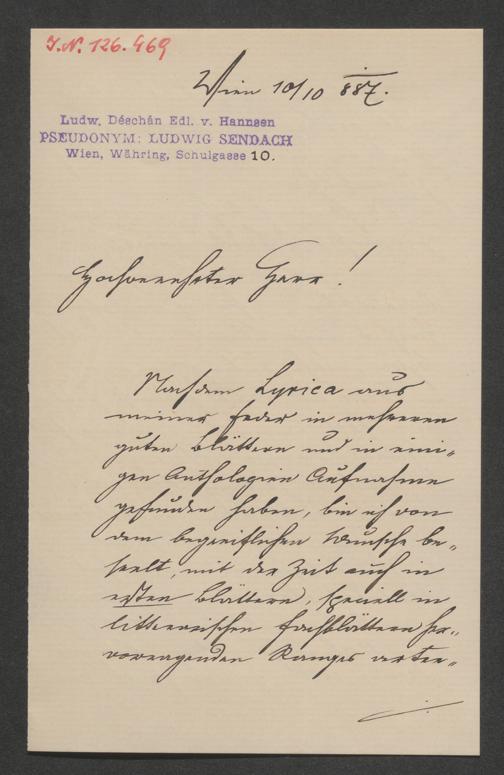 I.N. 126.469
Wien 10/10 887.
Ludw. Déschán Edl. v. Hannsen
PSEUDONYM: LUDWIG SENDACH
Wien, Währing, Schulgasse 10.
Hochverehrter Herr!
Nachdem Lyrica aus
meiner Feder in mehreren
guten Blättern und in eini„
gen Anthologien Aufnahme
gefunden haben, bin ich von
dem begreiflichen Wunsche be„
seelt, mit der Zeit auch in
ersten Blättern, speciell in
litterarischen Fachblättern her„
vorragenden Ranges